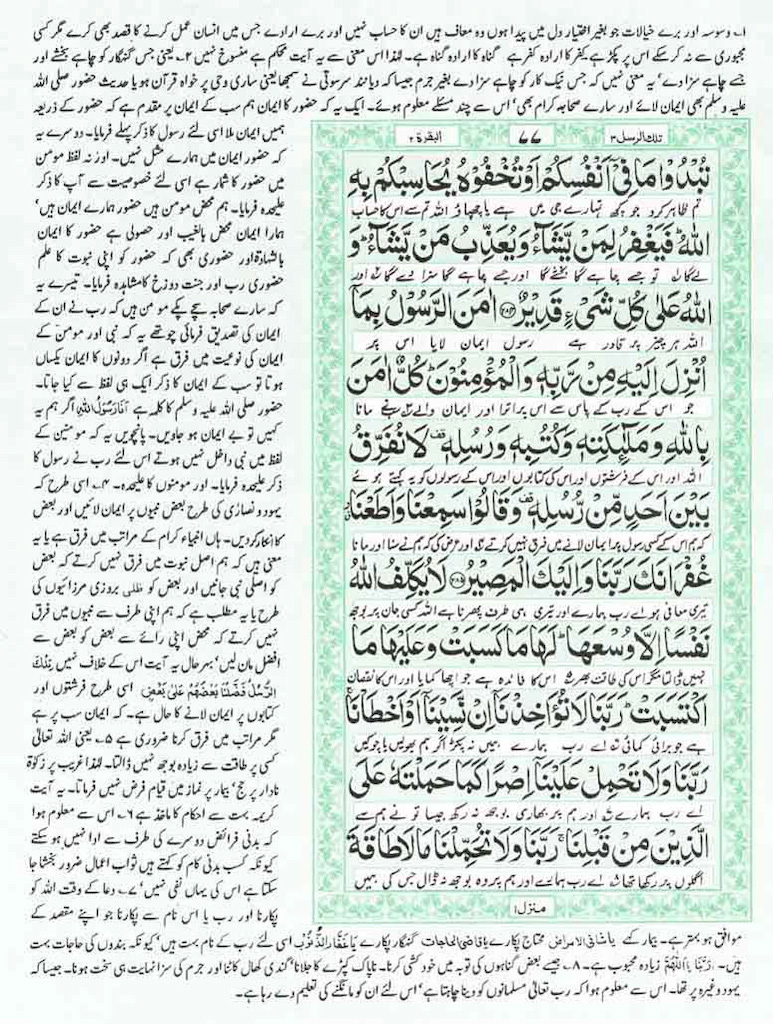 ۱۔ وسوسہ اور برے خیالات جو بغیر اختیار دل میں پیدا ہوں وہ معاف ہیں ان کا حساب نہیں اور برے ارادے جس میں انسان عمل کرنے کا قصد بھی کرے مگر کسی
مجبوری سے نہ کر سکے اس پر پکڑ ہے کفر کا ارادہ کفر ہے گناہ کا ارادہ گناہ ہے۔ لہذا اس معنی سے یہ آیت محکم ہے منسوخ نہیں ۲۔ یعنی جس گنہگار کو چاہے بخشے اور
جسے چاہے سزا دے' یہ معنی نہیں کہ جس نیک کار کو چاہے سزا دے بغیر جرم جیسا کہ دیانند سرسوتی نے سمجھا یعنی ساری وحی پر خواہ قرآن ہو یا حدیث حضور صلی اللہ
علیہ وسلم بھی ایمان لائے اور سارے صحابہ کرام بھی' اس سے چند مسئلے معلوم ہوئے۔ ایک یہ کہ حضور کا ایمان ہم سب کے ایمان پر مقدم ہے کہ حضور کے ذریعہ
ہمیں ایمان ملا اسی لئے رسول کا ذکر پہلے فرمایا۔ دوسرے یہ
کہ حضور ایمان میں ہمارے مثل نہیں۔ ورنہ لفظ مومن
میں حضور کا شمار ہے اسی لئے خصوصیت سے آپ کا ذکر
علیحدہ فرمایا۔ ہم محض مومن ہیں حضور ہمارے ایمان ہیں'
ہمارا ایمان محض بالغیب اور حصولی ہے حضور کا ایمان
بالشہادۃ اور حضوری بھی کہ حضور کو اپنی نبوت کا علم
حضوری رب اور جنت دوزخ کا مشاہدہ فرمایا۔ تیسرے یہ
کہ سارے صحابہ سچے پکے مومن ہیں کہ رب نے ان کے
ایمان کی تصدیق فرمائی چوتھے یہ کہ نبی اور مومن کے
ایمان کی نوعیت میں فرق ہے اگر دونوں کا ایمان یکساں
ہوتا تو سب کے ایمان کا ذکر ایک ہی لفظ سے کیا جاتا۔
حضور صلی اللہ علیہ وسلم کا کلمہ ہے اَنَا رَسُوْلُ اللّٰہِ اگر ہم یہ
کہیں تو بے ایمان ہو جاویں۔ پانچویں یہ کہ مومنین کے
لفظ میں نبی داخل نہیں ہوتے اس لئے رب نے رسول کا
ذکر علیحدہ فرمایا۔ اور مومنوں کا علیحدہ۔ ۴۔ اسی طرح کہ
یہود و نصاریٰ کی طرح بعض نبیوں پر ایمان لائیں اور بعض
کا انکار کردیں۔ ہاں انبیاء کرام کے مراتب میں فرق ہے یا یہ
معنی ہیں کہ ہم اصل نبوت میں فرق نہیں کرتے کہ بعض
کو اصلی نبی جانیں اور بعض کو ظلی بروزی مرزائیوں کی
طرح یا یہ مطلب ہے کہ ہم اپنی طرف سے نبیوں میں فرق
نہیں کرتے کہ محض اپنی رائے سے بعض کو بعض سے
افضل مان لیں' بہرحال یہ آیت اس کے خلاف نہیں تِلْکَ
الرُّسُلُ فَضَّلْنَا بَعْضَهُمْ عَلٰی بَعْضٍ اسی طرح فرشتوں اور
کتابوں پر ایمان لانے کا حال ہے۔ کہ ایمان سب پر ہے
مگر مراتب میں فرق کرنا ضروری ہے ۵۔ یعنی اللہ تعالیٰ
کسی پر طاقت سے زیادہ بوجھ نہیں ڈالتا۔ لہذا غریب پر زکوٰۃ
نادار پر حج' بیمار پر نماز میں قیام فرض نہیں فرماتا۔ یہ آیت
کریمہ بہت سے احکام کا ماخذ ہے ۶۔ اس سے معلوم ہوا
کہ بدنی فرائض دوسرے کی طرف سے ادا نہیں ہو سکتے
کیونکہ کسب بدنی کام کو کہتے ہیں ثواب اعمال ضرور بخشا جا
سکتا ہے اس کی یہاں نفی نہیں' ۷۔ دعا کے وقت اللہ کو
پکارنا اور رب یا اس نام سے پکارنا جو اپنے مقصد کے
تلک الرسل ۳
۷۷
البقرۃ ۲
تُبْدُوْا مَا فِیْۤ اَنْفُسِكُمْ اَوْ تُخْفُوْهُ یُحَاسِبْكُمْ بِهِ
تم ظاہر کرو جو کچھ تمہارے جی میں ہے یا چھپاؤ اللہ تم سے اس کا حساب
اللّٰهُ فَیَغْفِرُ لِمَنْ یَّشَآءُ وَ یُعَذِّبُ مَنْ یَّشَآءُ وَ
لے گا ف۱ تو جسے چاہے گا بخشے گا اور جسے چاہے گا سزا دے گا ف۲ اور
اللّٰهُ عَلٰى كُلِّ شَیْءٍ قَدِیْرٌ ۲۸۴ اٰمَنَ الرَّسُوْلُ بِمَاۤ
اللہ ہر چیز پر قادر ہے رسول ایمان لایا اس پر
اُنْزِلَ اِلَیْهِ مِنْ رَّبِّهٖ وَ الْمُؤْمِنُوْنَ كُلٌّ اٰمَنَ
جو اس کے رب کے پاس سے اس پر اترا اور ایمان والے ف۳ سب نے مانا
بِاللّٰهِ وَ مَلٰٓىِٕكَتِهٖ وَ كُتُبِهٖ وَ رُسُلِهٖ لَا نُفَرِّقُ
اللہ اور اس کے فرشتوں اور اس کی کتابوں اور اس کے رسولوں کو یہ کہتے ہوئے
بَیْنَ اَحَدٍ مِّنْ رُّسُلِهٖ وَ قَالُوْا سَمِعْنَا وَ اَطَعْنَا
کہ ہم اس کے کسی رسول پر ایمان لانے میں فرق نہیں کرتے ف۴ اور عرض کی کہ ہم نے سنا اور مانا
غُفْرَانَكَ رَبَّنَا وَ اِلَیْكَ الْمَصِیْرُ ۲۸۵ لَا یُكَلِّفُ اللّٰهُ
تیری معافی ہو اے رب ہمارے اور تیری ہی طرف پھرنا ہے اللہ کسی جان پر بوجھ
نَفْسًا اِلَّا وُسْعَهَا لَهَا مَا كَسَبَتْ وَ عَلَیْهَا مَا
نہیں ڈالتا مگر اس کی طاقت بھر ف۵ اس کا فائدہ ہے جو اچھا کمایا اور اس کا نقصان
اكْتَسَبَتْ رَبَّنَا لَا تُؤَاخِذْنَاۤ اِنْ نَّسِیْنَاۤ اَوْ اَخْطَاْنَا
ہے جو برائی کمائی ف۶ اے رب ہمارے ہمیں نہ پکڑ اگر ہم بھولیں یا چوکیں
رَبَّنَا وَ لَا تَحْمِلْ عَلَیْنَاۤ اِصْرًا كَمَا حَمَلْتَهٗ عَلَى
اے رب ہمارے ف۷ اور ہم پر بھاری بوجھ نہ رکھ جیسا تو نے ہم سے
الَّذِیْنَ مِنْ قَبْلِنَا رَبَّنَا وَ لَا تُحَمِّلْنَا مَا لَا طَاقَةَ
اگلوں پر رکھا تھا ف۸ اے رب ہمارے اور ہم پر وہ بوجھ نہ ڈال جس کی ہمیں
منزل ۱
موافق ہو بہتر ہے۔ بیمار کہے یا شافی الامراض محتاج پکارے یا قاضی الحاجات گنہگار پکارے یا غَفَّارَ الذُّنُوْبِ اسی لئے رب کے نام بہت ہیں' کیونکہ بندوں کی حاجات بہت
ہیں۔ رَبَّنَا یا اَللّٰهُمَّ زیادہ محبوب ہے۔ ۸۔ جیسے بعض گناہوں کی توبہ میں خود کشی کرنا۔ ناپاک کپڑے کا جلانا' گندی کھال کاٹنا اور جرم کی سزا نہایت ہی سخت ہونا۔ جیسا کہ
یہود وغیرہ پر تھا۔ اس سے معلوم ہوا کہ رب تعالیٰ مسلمانوں کو دینا چاہتا ہے' اس لئے ان کو مانگنے کی تعلیم دے رہا ہے۔